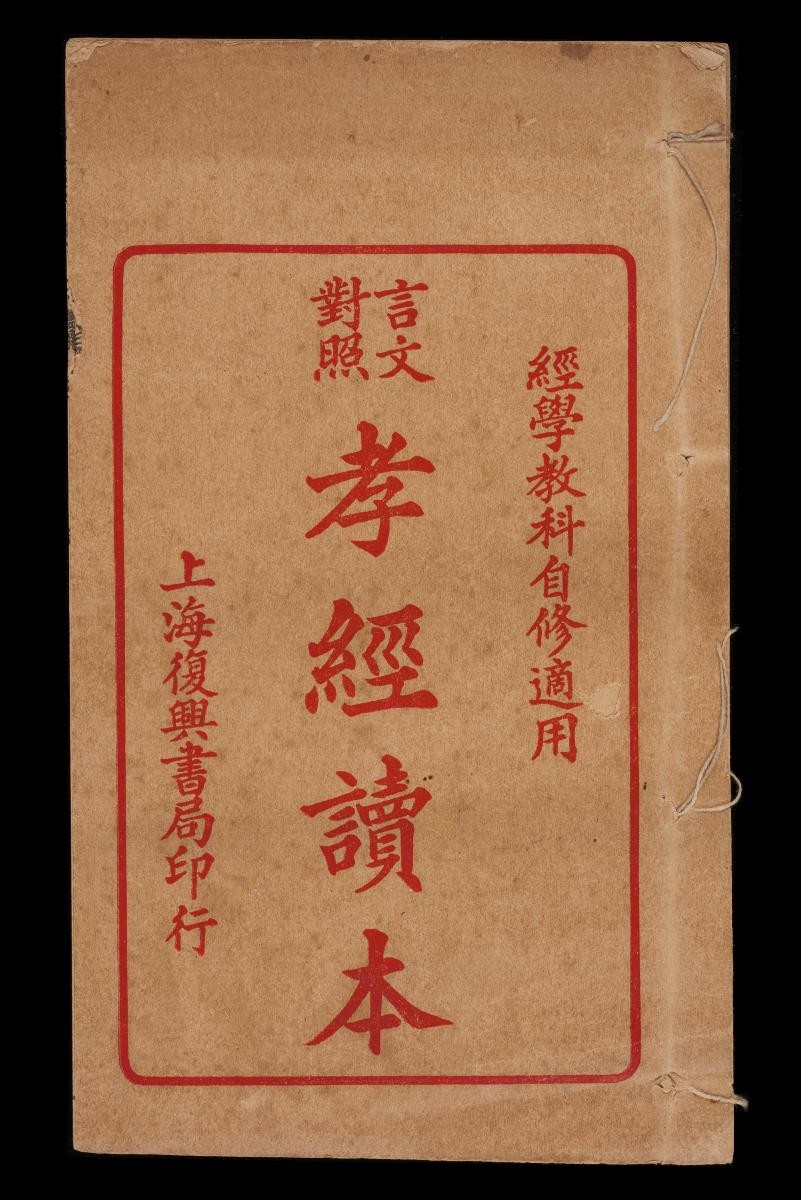 經學教科自修適用
言文
對照
孝經讀本
上海復興書局印行